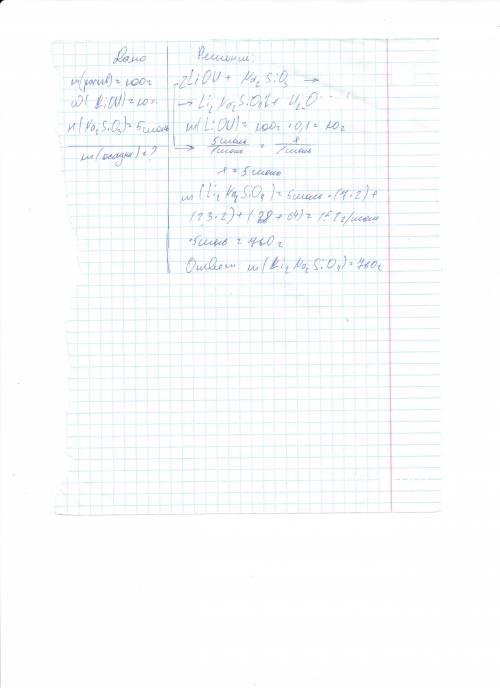 Дано
m(раств)=100г
ω(LiOH)=10%
n(Na₂SiO₃)=5моль
m(осадка)=?
Решение:
2LiOH + Na₂SiO₃ →
→ Li₂Na₂SiO₄↓ + H₂O
m(LiOH)=100г·0,1=10г
5моль/1моль = x/1моль
x=5моль
m(Li₂Na₂SiO₄)=5моль·(7·2)+
(23·2)+(28+64)=152г/моль
·5моль=760г
Ответ: m(Li₂Na₂SiO₄)=760г